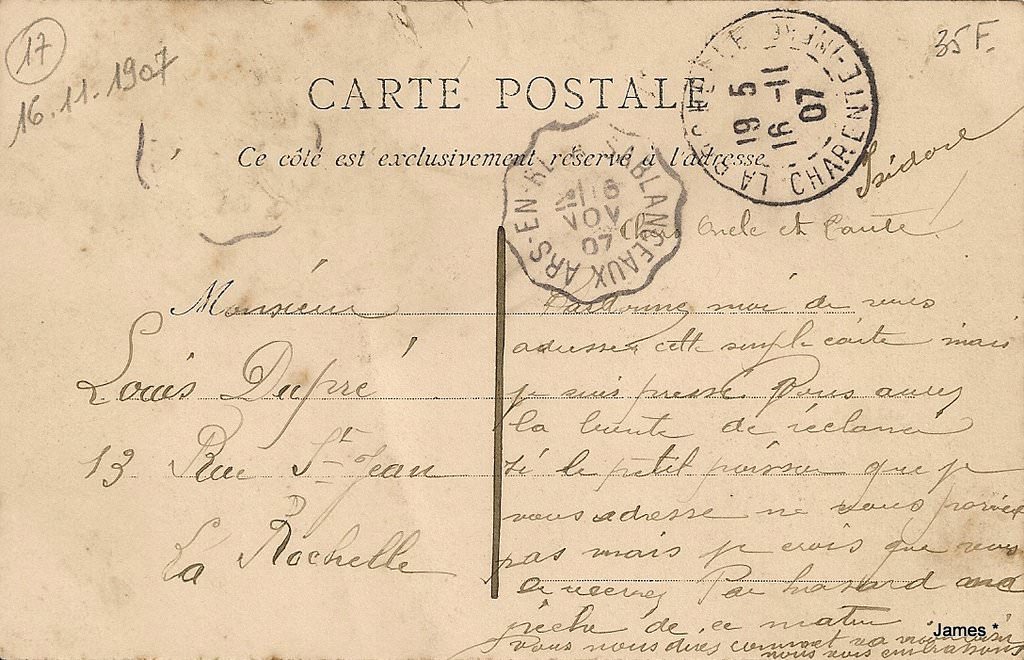 17
16.11.1907
35 F.
CARTE POSTALE
Ce côté est exclusivement réservé à l'adresse
LA ROCHELLE CHARENTE-INFRE
19 5
16 -11
07
ARS-EN-RE SABLANCEAUX
16
NOV
07
Isidore
Chers Oncle et Tante
Monsieur
Louis Dupré
13 Rue St-Jean
La Rochelle
moi de vous
adresser cette simple carte mais
je suis pressé Vous aurez
la bonté de réclamer
si le petit poisson que je
vous adresse ne vous
pas mais je crois que vous
le Par hasard
pêché de ce matin
vous nous direz comment va
nous vous embrassons
James *